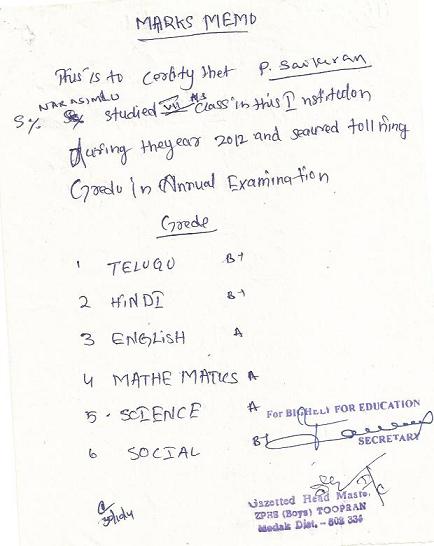 MARKS MEMO
This is to certify that P. Saikiran
NARASIMLU
S/o studied VII class in this Institution
during the year 2012 and secured
Grade in Annual Examination
Grede
1 TELUGU B+
2 HINDI B+
3 ENGLISH A
4 MATHE MATICS A
5 - SCIENCE A
6 SOCIAL B+
For BIGHELP FOR EDUCATION
SECRETARY
Gazetted Head Maste
ZPHS (Boys) TOOPRAN
Medak Dist. - 502 334